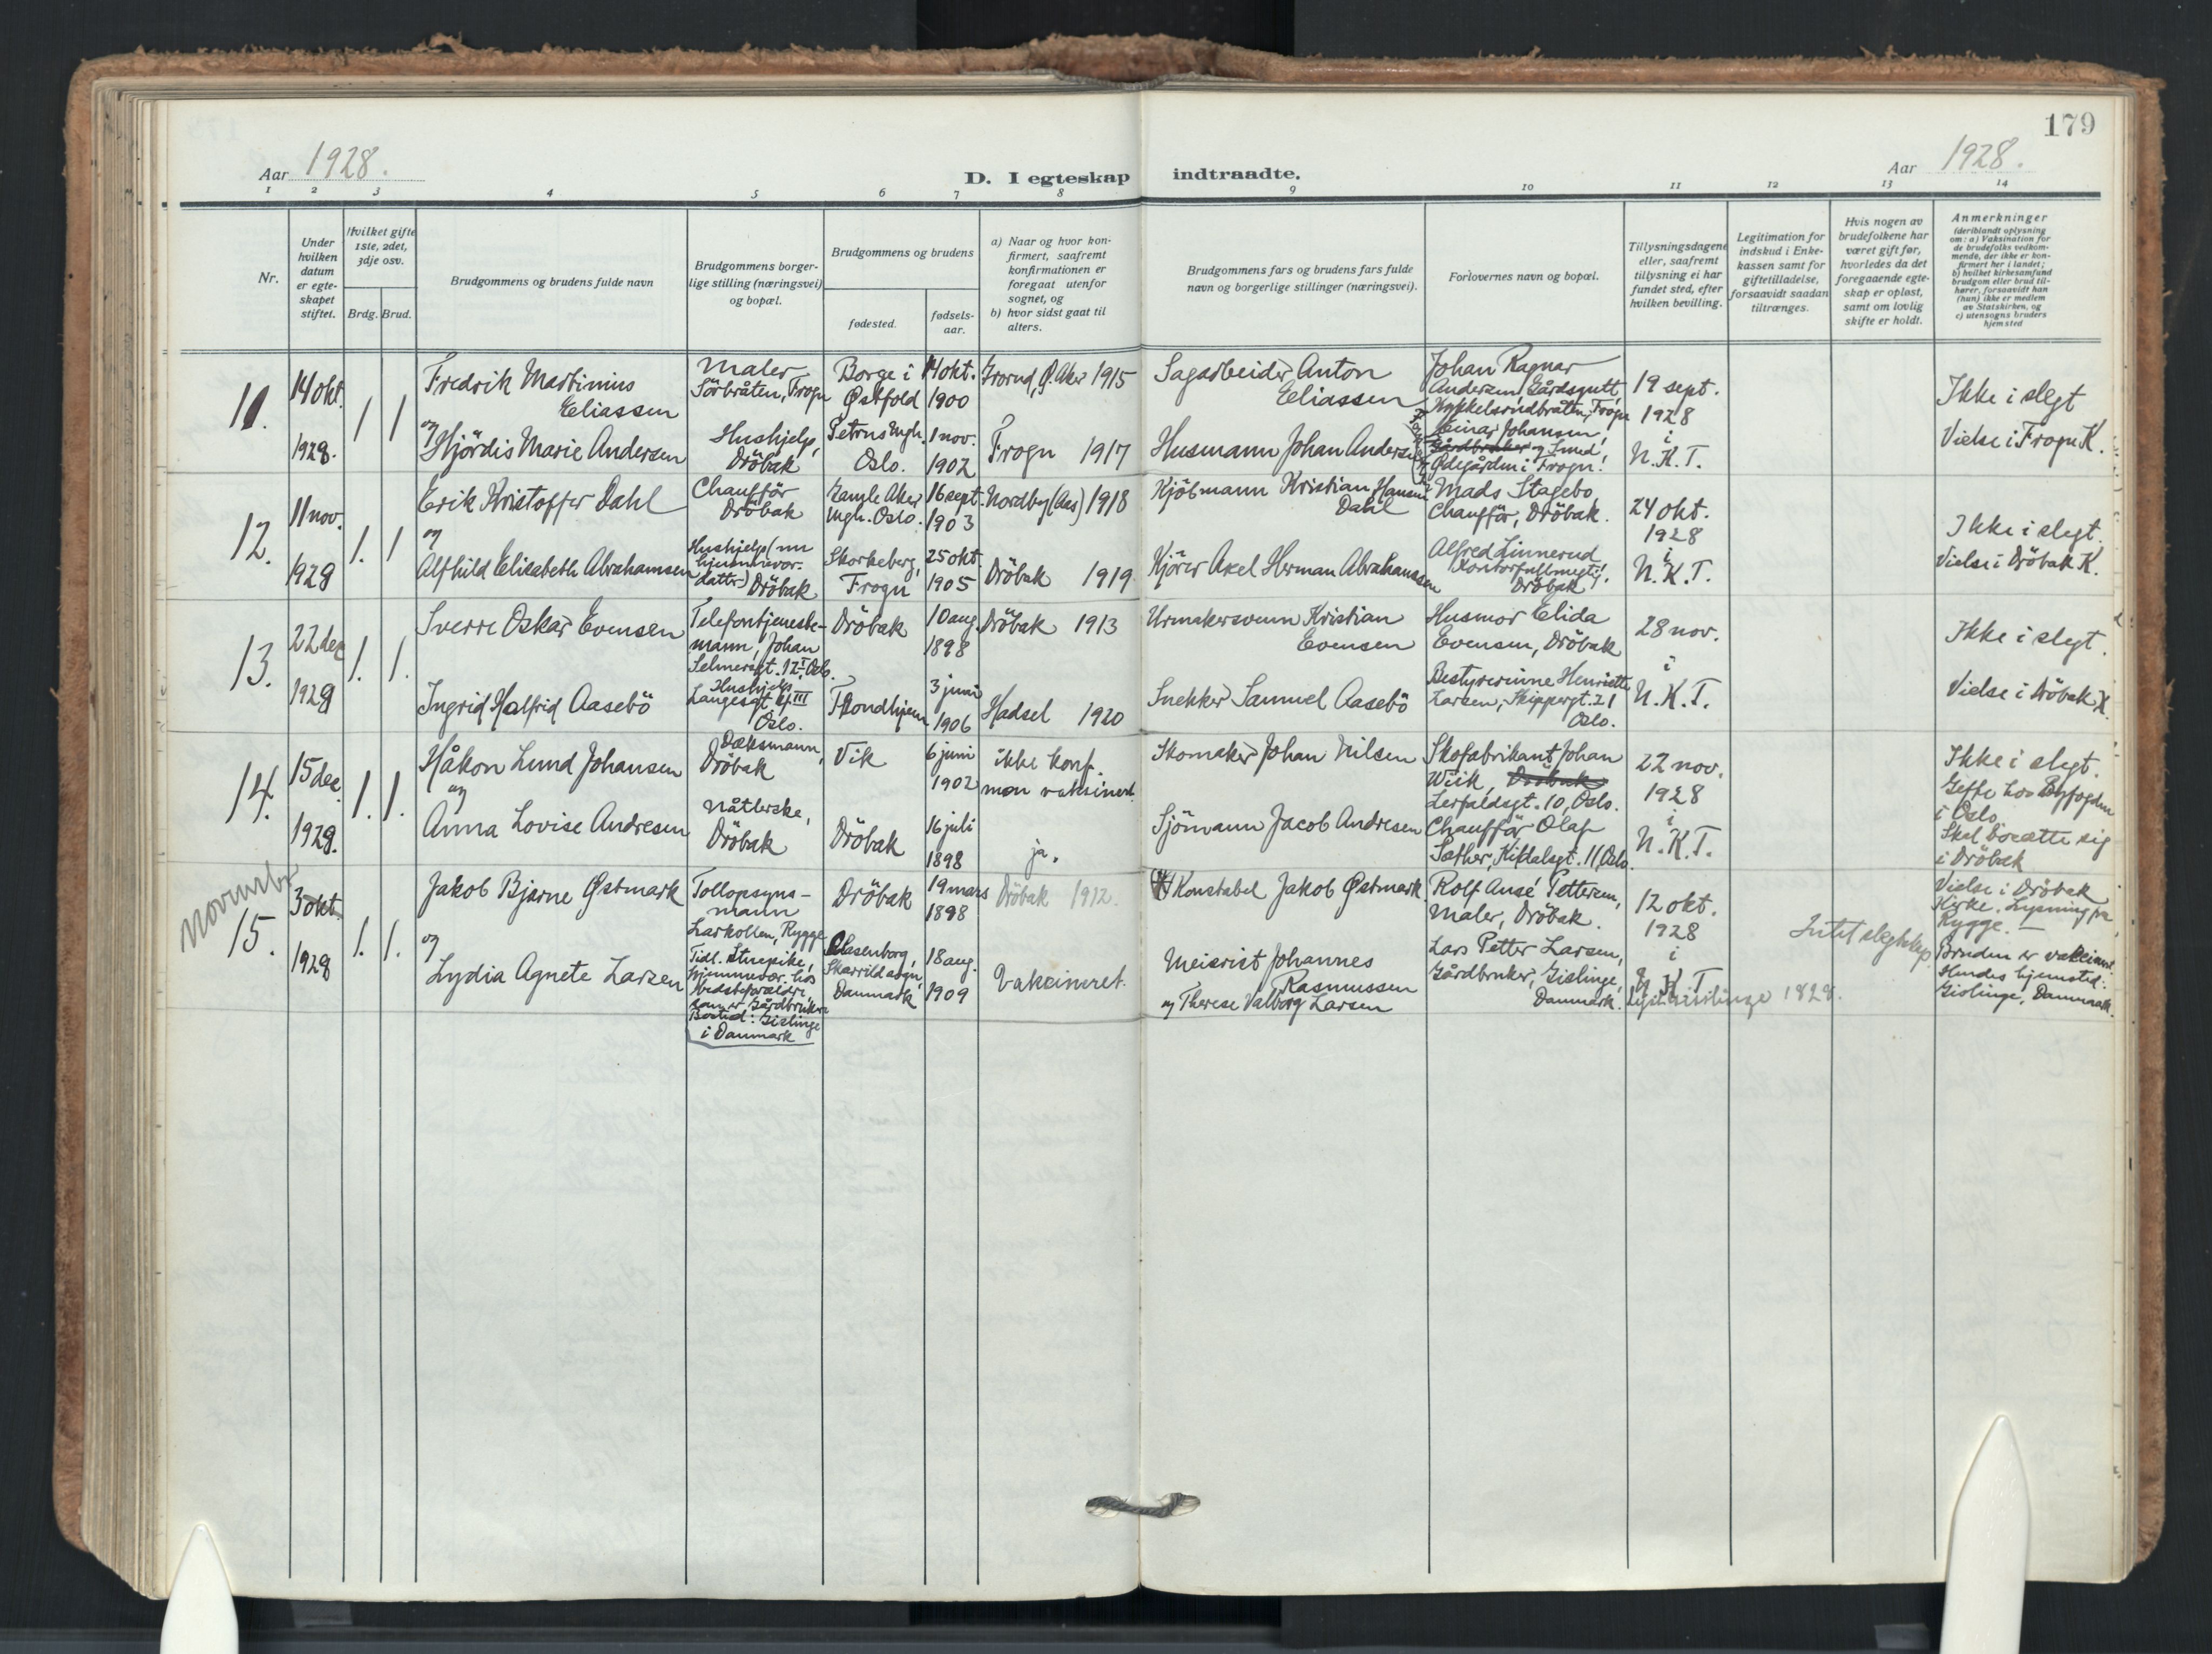 179
Aar 1928.
D. I egteskap indtraadte.
Aar 1928.
1 2 3 4 5 6 7 8 9 10 11 12 13 14
Nr.
Under
hvilken
datum
er egte-
skapet
stiftet.
Hvilket gifte
1ste, 2det,
3dje osv.
Brdg. Brud.
Brudgommens og brudens fulde navn
Brudgommens borger-
lige stilling (næringsvei)
og bopæl.
Brudgommens og brudens
fødested.
fødsels-
aar.
a) Naar og hvor kon-
firmert, saafremt
konfirmationen er
foregaat utenfor
sognet, og
b) hvor sidst gaat til
alters.
Brudgommens fars og brudens fars fulde
navn og borgerlige stillinger (næringsvei).
Forlovernes navn og bopæl.
Tillysningsdagene
eller, saafremt
tillysning ei har
fundet sted, efter
hvilken bevilling.
Legitimation for
indskud i Enke-
kassen samt for
giftetilladelse,
forsaavidt saadan
tiltrænges.
Hvis nogen av
brudefolkene har
været gift før,
hvorledes da det
foregaaende egte-
skap er opløst,
samt om lovlig
skifte er holdt.
Anmerkninger
(deriblandt oplysning
om: a) Vaksination for
de brudefolks vedkom-
mende, der ikke er kon-
firmert her i landet;
b) hvilket kirkesamfund
brudgom eller brud til-
hører, forsaavidt han
(hun) ikke er medlem
av Statskirken, og
c) utensogns bruders
hjemsted
11.
14 okt.
1928.
1 1
Fredrik Martinius
Eliassen
og
Hjördis Marie Andersen
Maler
Sörbråten, Frogn
Hushjelp,
Dröbak
Borge i
Østfold
Petrus mgh.
Oslo.
14 okt.
1900
1 nov.
1902
Grorud, Ø. Aker 1915
Frogn 1917
Sagarbeider Anton
Eliassen
Husmann Johan Andersen
Johan Ragnar
Andersen, Gårdsgutt,
Nykkelsrudbråten, Frogn
Einar Johansen,
Gårdbruker Lund,
Ødegården i Frogn.
19 sept.
1928
i
N.K.T.
Ikke i slegt
Vielse i Frogn K.
12.
11 nov.
1928
1. 1
Erik Kristoffer Dahl
og
Alfhild Elisabeth Abrahamsen
Chaufför
Dröbak
Hushjelp (nu
hjemmevær.
datter) Dröbak
Gamle Aker
mgh. Oslo.
Skorkeberg,
Frogn
16 sept.
1903
25 okt.
1905
Nordby (Aas) 1918
Dröbak 1919
Kjöbmann Kristian Hansen
Dahl
Kjörer Axel Herman Abrahamsen
Mads Stagebo,
Chaufför, Dröbak.
Alfred Linnerud
Kontorfullmegtig,
Dröbak
24 okt.
1928
i
N.K.T.
Ikke i slegt.
Vielse i Dröbak K.
13.
22 dec
1928
1. 1.
Sverre Oskar Evensen
Ingrid Halfrid Aasebö
Telefontjeneste-
mann, Johan
Selmersgt. 12 I, Oslo.
Hushjelp
Langesgt III
Oslo.
Dröbak
Trondhjem
10 aug
1898
3 juni
1906
Dröbak 1913
Hadsel 1920
Urmakersvenn Kristian
Evensen
Snekker Samuel Aasebö
Husmor Elida
Evensen, Dröbak
Bestyrerinne Henriette
Larsen, Skippergt. 21
Oslo.
28 nov.
i
N.K.T.
Ikke i slegt.
Vielse i Dröbak K.
14.
15 dec.
1928.
1. 1.
Håkon Lund Johansen
og
Anna Lovise Andresen
Dæksmann,
Dröbak
Nåtlerske,
Dröbak
Vik
Dröbak
6 juni
1902
16 juli
1898
ikke konf.
men vaksinert
ja.
Skomaker Johan Nilsen
Sjömann Jacob Andresen
Skofabrikant Johan
Wiik, Dröbak
Lerfaldsgt. 10, Oslo.
Chaufför Olaf
Sæther, Kildalsgt. 11, Oslo
22 nov.
1928
i
N.K.T.
Ikke i slegt.
Gifte hos Byfogden
i Oslo.
Skal bosætte sig
i Dröbak
November
15.
3 okt.
1928
1. 1.
Jakob Bjarne Østmark
og
Lydia Agnete Larsen
Tollopsyns-
mann
Larkollen, Rygge
Tidl. Stuepike,
hjemmevær. hos
Bedsteforældre,
som er Gårdbrukere
Bosted: Gislinge
i Danmark
Dröbak
Clasenborg,
Skarrild sogn,
Danmark
19 mars
1898
18 aug.
1909
Dröbak 1912.
Vakcineret.
Konstabel Jakob Østmark
Meierist Johannes
Rasmussen
og Therese Valborg Larsen
Rolf Ansé Pettersen,
Maler, Dröbak.
Lars Petter Larsen,
Gårdbruker, Gislinge,
Danmark.
12 okt.
1928
i
N.K.T.
Gislinge 1828.
Intet slegtskap.
Vielse i Dröbak
Kirke. Lysning fra
Rygge. —
Bruden er vakcinert.
Hendes hjemsted:
Gislinge, Danmark.